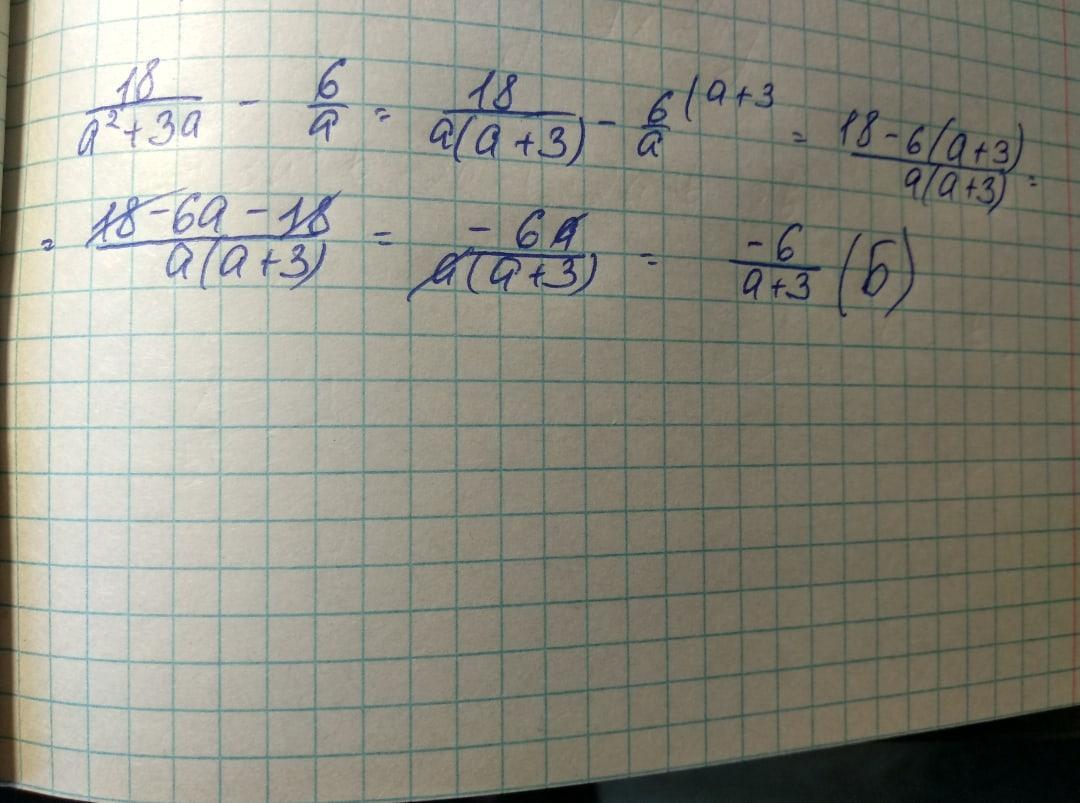 18/(a²+3a) - 6/a = 18/(a(a+3)) - 6/a (a+3 = (18-6(a+3))/(a(a+3)) =
= (18-6a-18)/(a(a+3)) = -6a/(a(a+3)) = -6/(a+3) (б)